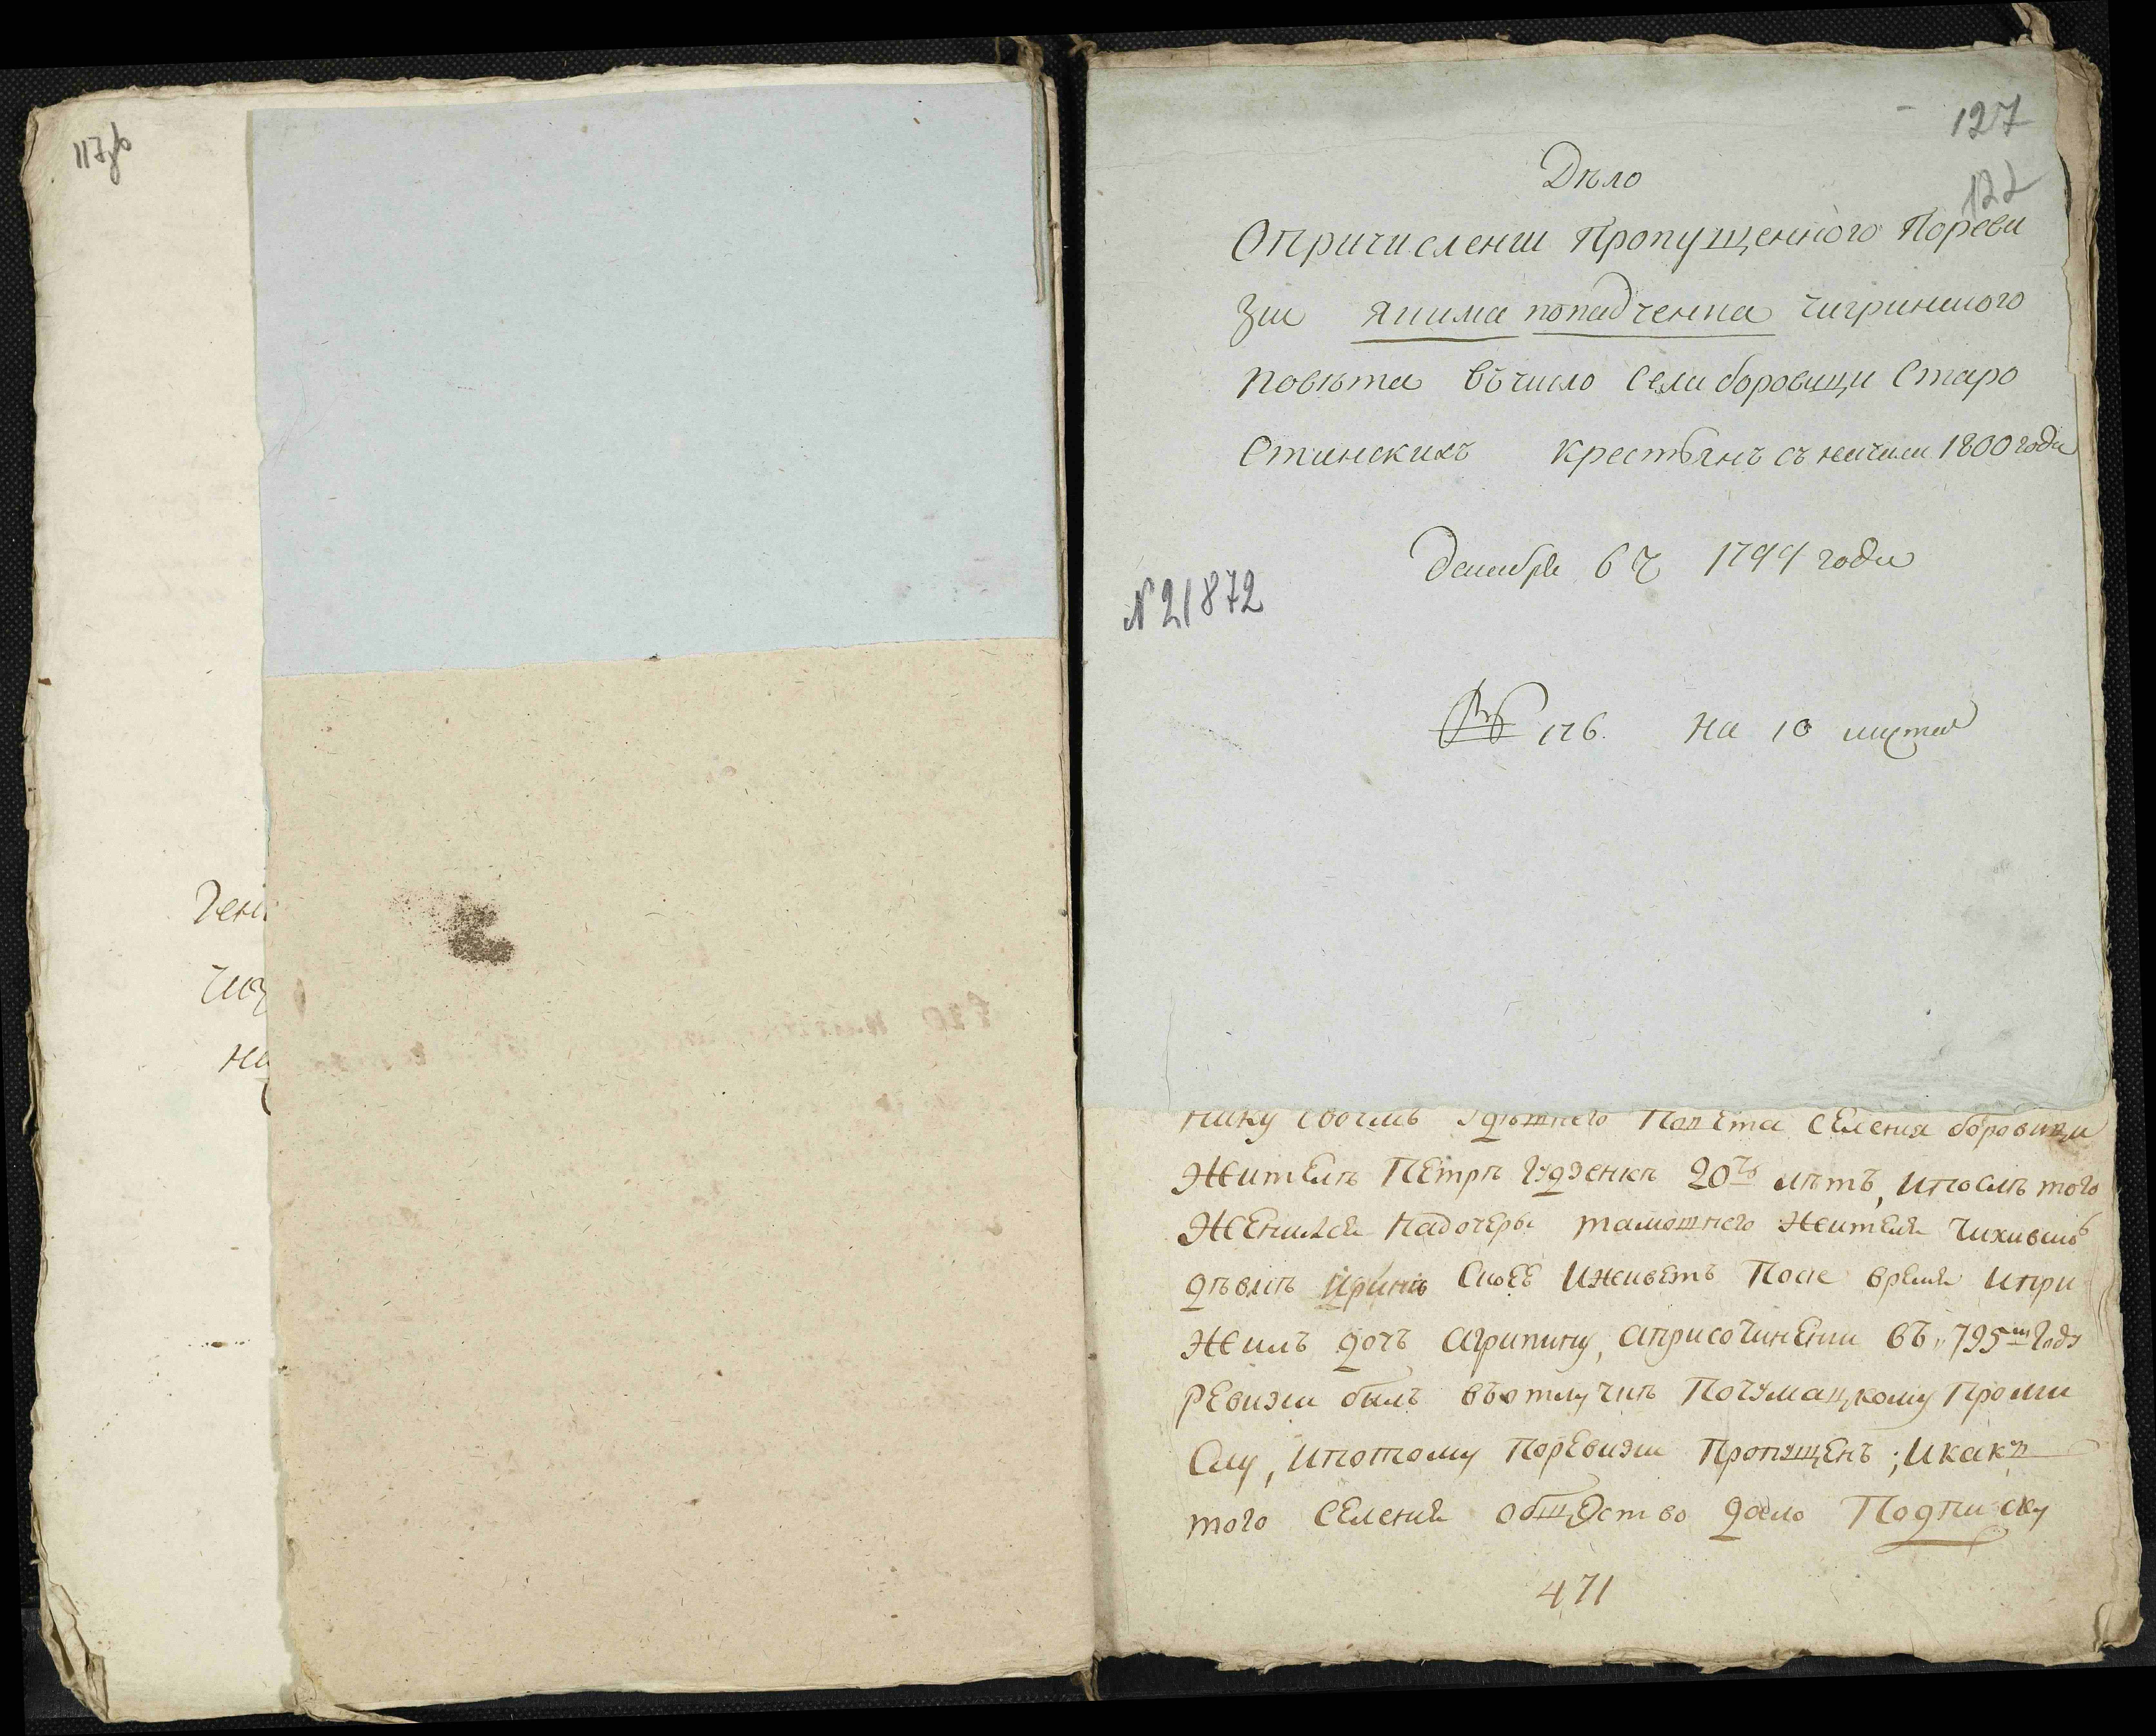 117об
127
122
Дѣло
Опричислении Пропущенного Пореви
зии Якима попадченка чигринского
повѣта въ число села боровици Старо
Стинскихъ крестьянъ съ начала 1800 года
Декабря 6 ч 1799 года
№ 21872
176. на 10 листах
нику своемъ здѣшнего Повета селения боровици
жителѣ Петрѣ 20ть лѣтъ, ипослѣ того
женился надочеры тамошнего жителя
Иринѣ Сиоее иживетъ После время ипри
жилъ дочъ Агрипину, априсочинении въ 795м году
ревизии былъ вьотлучкѣ Почумацкому Проми
слу, ипотому поревизии пропущенъ; икакъ
того селения общество дало Подписку
471